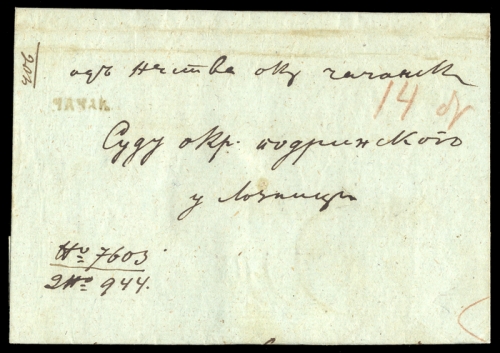 одъ Нчства окр чачанск
14
Суду окр. подринскогъ
у Лозници
№ 7603
2 № 944.